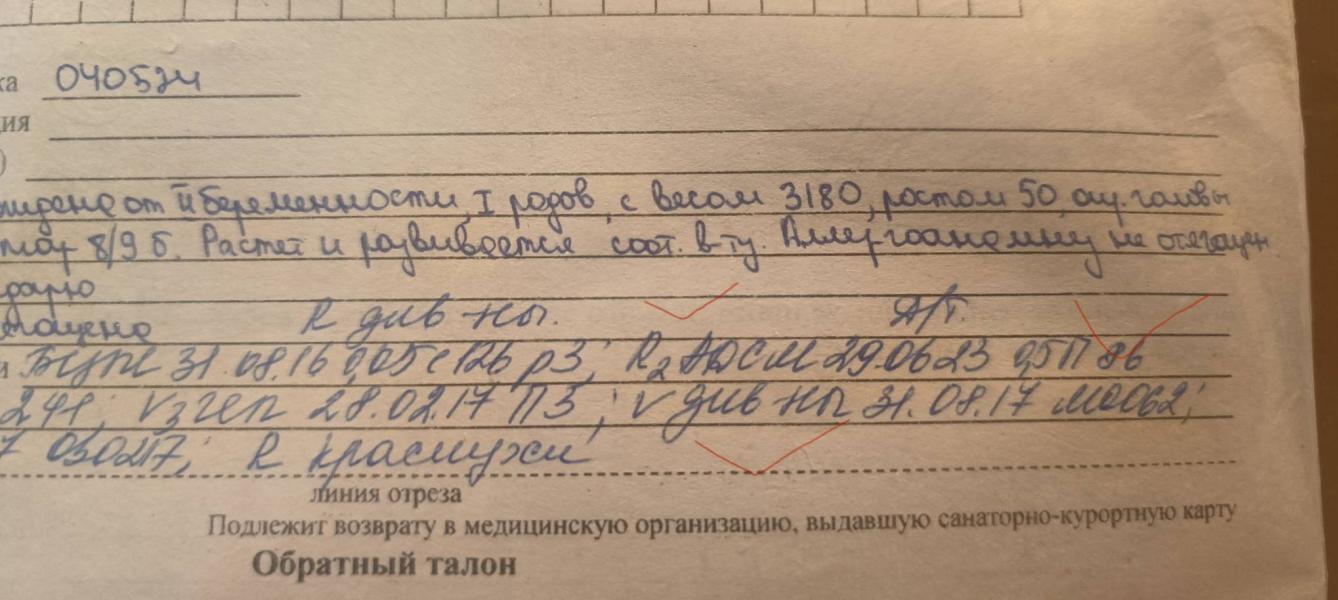 ка 040524
ция
)
ждена от II беременности, I родов, с весом 3180, ростом 50, окр. головы
8/9 б. Растет и развивается соот. в-ту. Аллергоанамнез не отягощен
R див-ны. А/Т.
БЦЖ 31.08.16 0,05 с126 р3; R2 АДСМ 29.06.23 0,5 П86
241; V3 геп 28.02.17 П3; V див-ны 31.08.17 М0062;
7 030217; R краснухи
линия отреза
Подлежит возврату в медицинскую организацию, выдавшую санаторно-курортную карту
Обратный талон